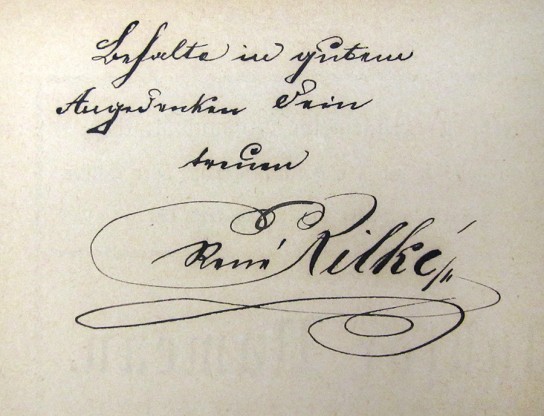 Behalte in gutem
Angedenken Dein
treuen
René Rilké